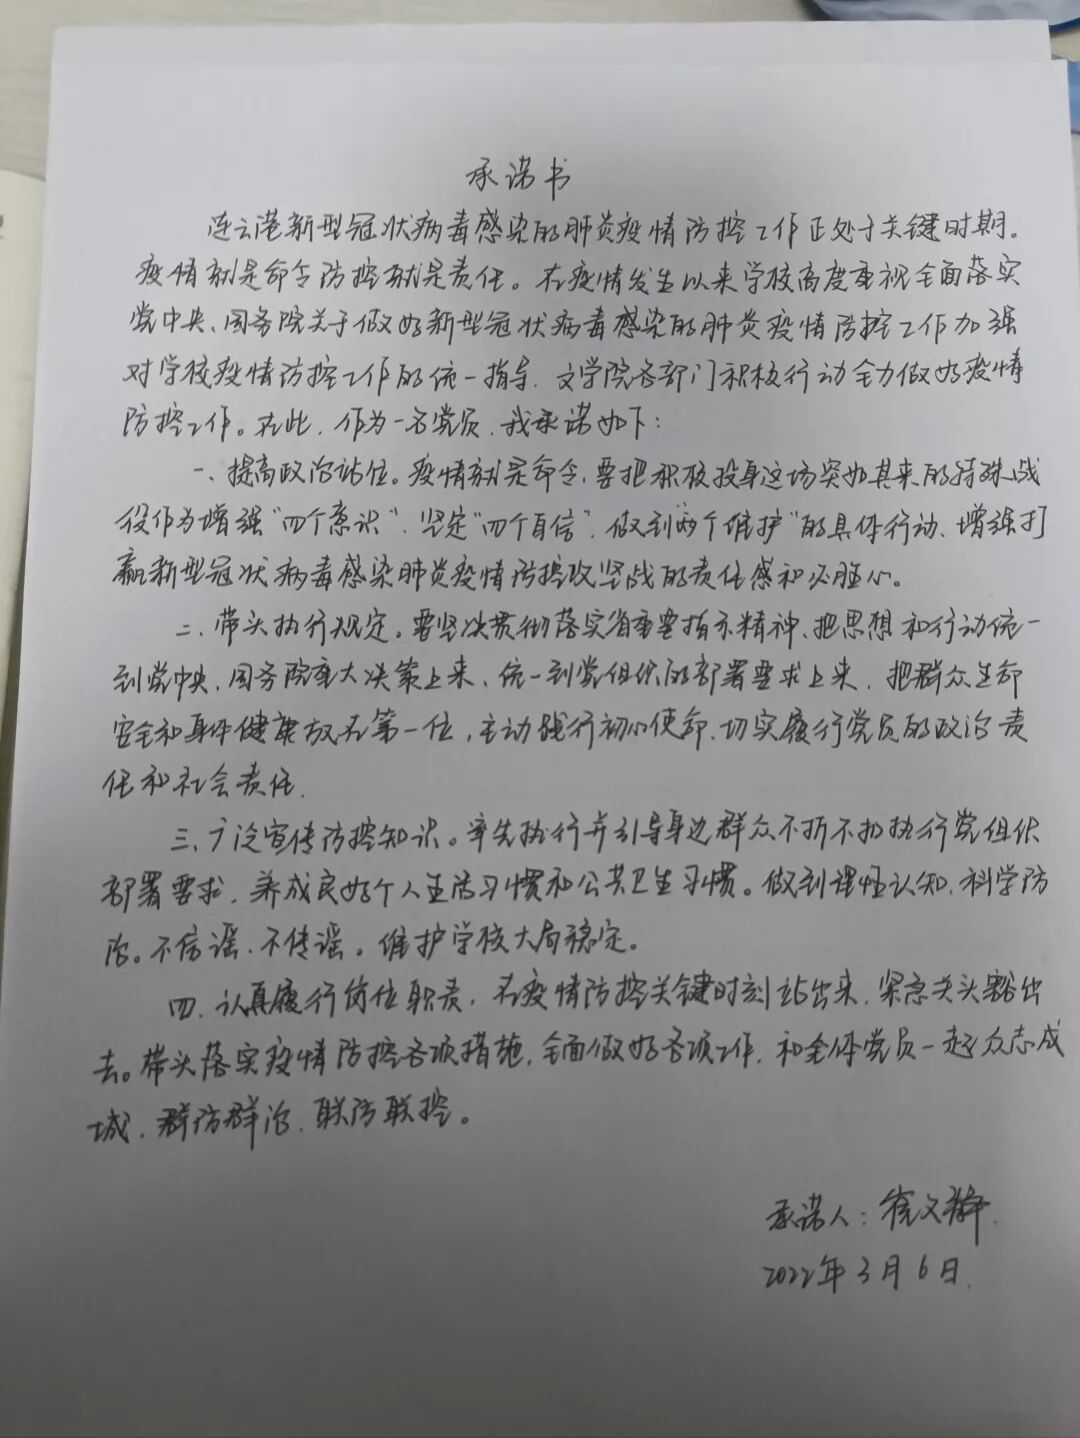 承诺书
连云港新型冠状病毒感染的肺炎疫情防控工作正处于关键时期。
疫情就是命令防控就是责任。在疫情发生以来学校高度重视全面落实
党中央、国务院关于做好新型冠状病毒感染的肺炎疫情防控工作加强
对学校疫情防控工作的统一指导、文学院各部门积极行动全力做好疫情
防控工作。在此、作为一名党员、我承诺如下：
一、提高政治站位。疫情就是命令、要把积极投身这场突如其来的特殊战
役作为增强“四个意识”、坚定“四个自信”、做到“两个维护”的具体行动、增强打
赢新型冠状病毒感染肺炎疫情防控攻坚战的责任感和必胜心。
二、带头执行规定。要坚决贯彻落实省重要指示精神、把思想和行动统一
到党中央、国务院重大决策上来、统一到党组织的部署要求上来、把群众生命
安全和身体健康放在第一位，主动践行初心使命、切实履行党员的政治责
任和社会责任.
三、广泛宣传防控知识。率先执行并引导身边群众不折不扣执行党组织
部署要求，养成良好个人生活习惯和公共卫生习惯。做到理性认知、科学防
治。不信谣、不传谣。维护学校大局稳定。
四、认真履行岗位职责，在疫情防控关键时刻站出来、紧急关头豁出
去。带头落实疫情防控各项措施，全面做好各项工作，和全体党员一起众志成
城、群防群治、联防联控。
承诺人：文静
2022年3月6日.